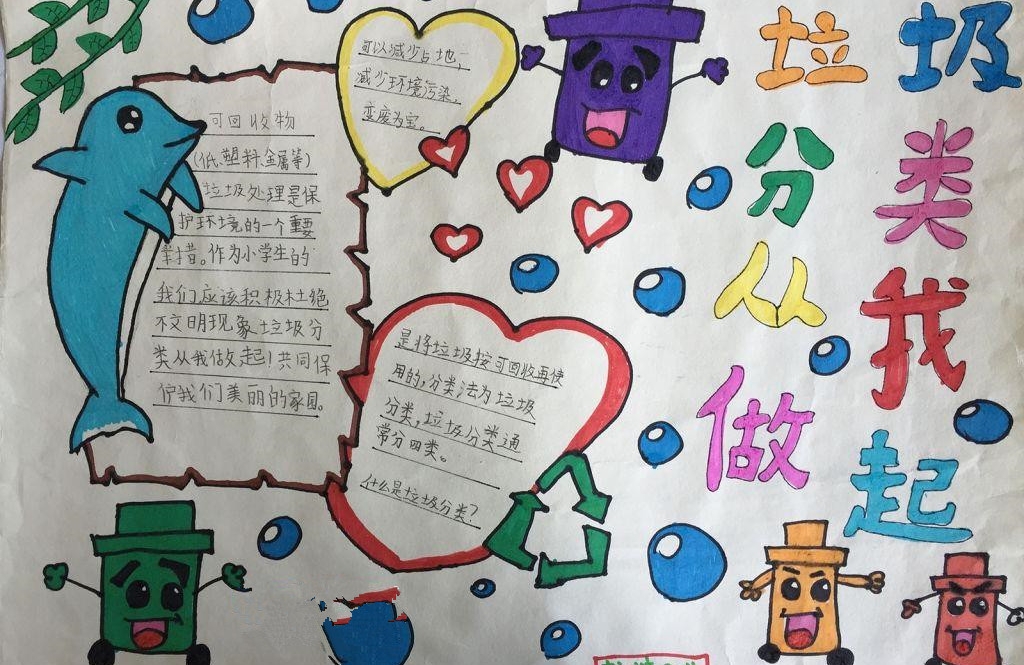 垃圾
分类
从我
做起
可以减少占地,
减少环境污染,
变废为宝。
可回收物
(低.塑料.金属等)
垃圾处理是保
护环境的一个重要
举措。作为小学生的
我们应该积极杜绝
不文明现象垃圾分
类从我做起!共同保
护我们美丽的家园。
是将垃圾按可回收再使
用的,分类法为垃圾
分类,垃圾分类通
常分四类。
什么是垃圾分类?